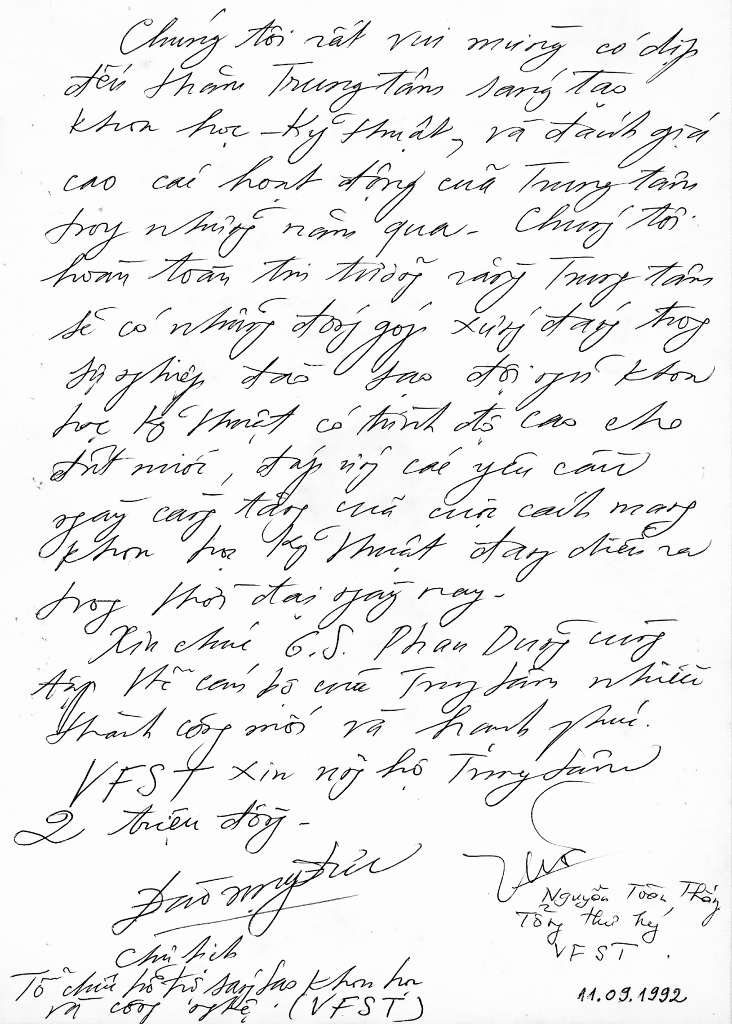 Chúng tôi rất vui mừng có dịp
đến thăm Trung tâm sáng tạo
khoa học - Kỹ thuật, và đánh giá
cao các hoạt động của Trung tâm
trong những năm qua. Chúng tôi
hoàn toàn tin tưởng rằng Trung tâm
sẽ có những đóng góp xứng đáng trong
sự nghiệp đào tạo đội ngũ khoa
học kỹ thuật có trình độ cao cho
đất nước, đáp ứng các yêu cầu
ngày càng tăng của cuộc cách mạng
khoa học kỹ thuật đang diễn ra
trong thời đại ngày nay.
Xin chúc G.S. Phan Dũng cùng
tập thể cán bộ của Trung tâm nhiều
thành công mới và hạnh phúc.
VFST xin ủng hộ Trung tâm
2 triệu đồng -
Nguyễn Toàn Thắng
Tổng thư ký
VFST
Chủ tịch
Tổ chức hỗ trợ sáng tạo khoa học
và công nghệ. (VFST)
11.09.1992